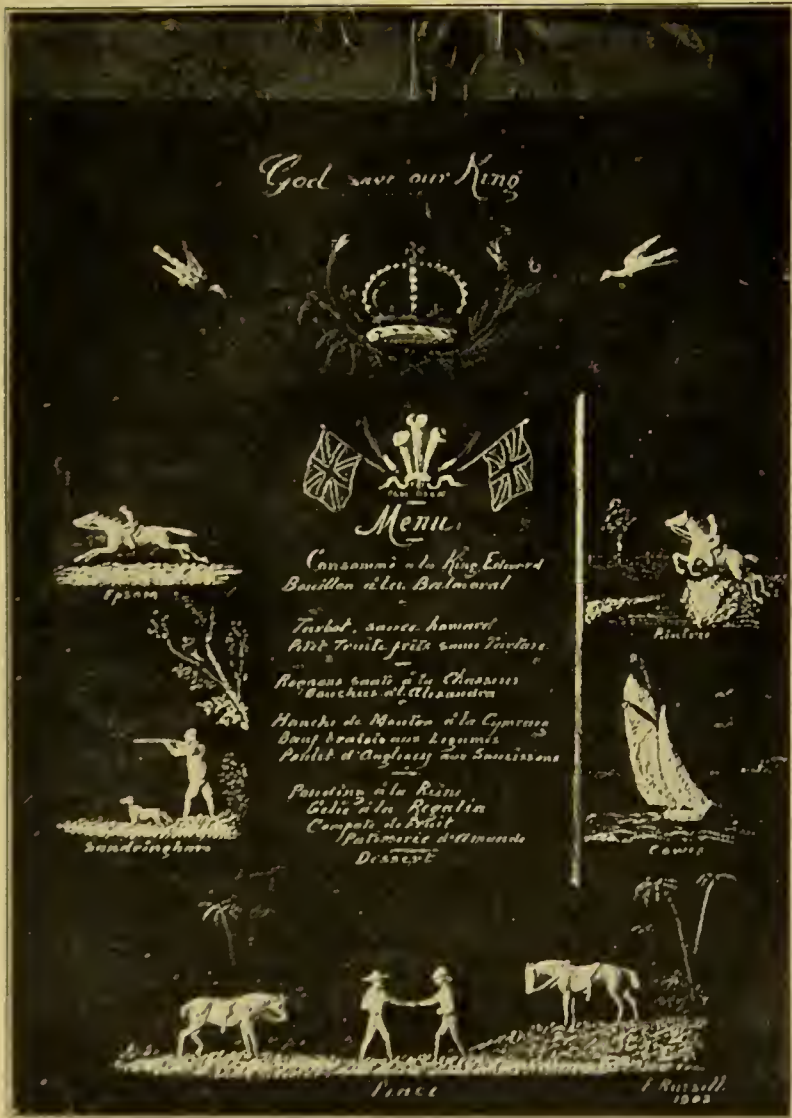 God save our King
Menu.
Consommé à la King Edward
Bouillon à la Balmoral
Turbot, sauce homard
Petit Truite frits sauce Tartare
Rognons sauté à la Chasseur
Bouchées à l'Alexandra
Hanche de Mouton à la
Bœuf aux Legumes
Poulet d' aux Saucissons
Pouding à la Reine
Gelée à la Regalia
Compote de Fruit
Patisserie d'Amande
Dessert
Epsom
Sandringham
Cowes
Peace
F Russell.